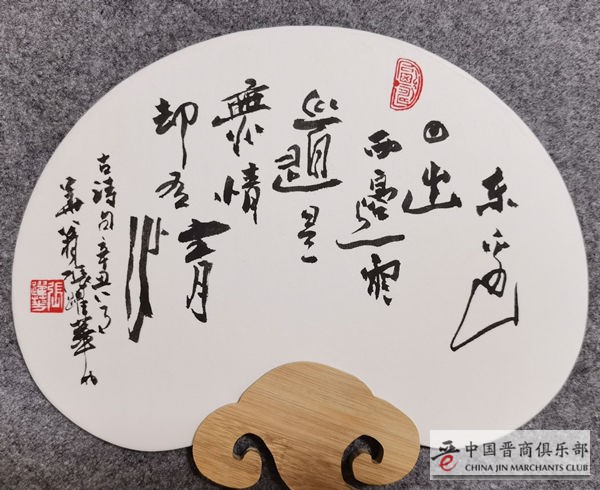 东边
日出
西邊雨
道是
無情
却有
情
古詩句辛丑八月
張躍華
中国晋商俱乐部
CHINA JIN MARCHANTS CLUB